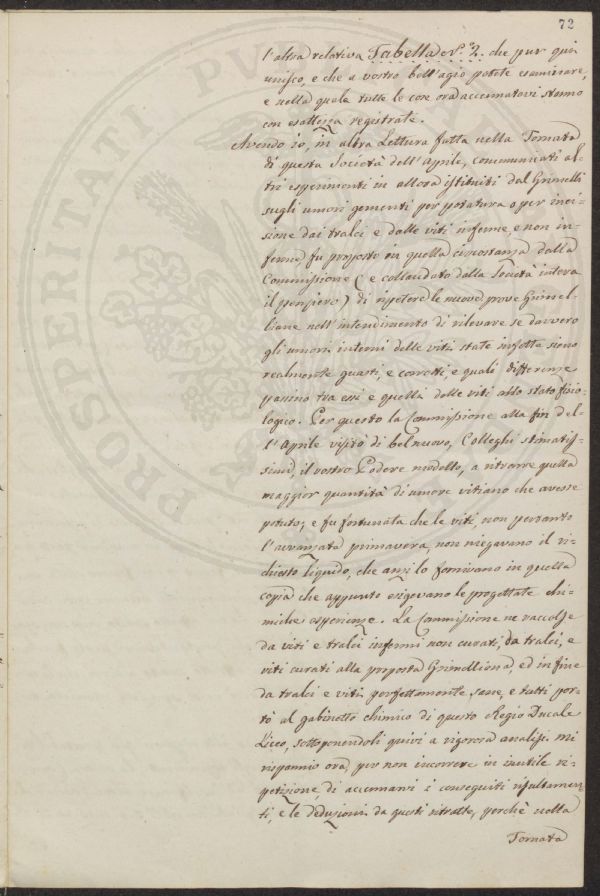 72
l'altra relativa Tabella N.º 2. che pur qui
unisco, e che a vostro bell'agio potete esaminare,
e nella quale tutte le cose ora accennatevi stanno
con esattezza registrate.
Avendo io, in altra Lettura fatta nella Tornata
di questa Società dell'Aprile, comunicati al-
tri esperimenti in allora istituiti dal Grimelli
sugli umori gementi per potatura o per inci-
sione dai tralci e dalle viti inferme, e non in-
ferme, fu proposto in quella circostanza dalla
Commissione (e collaudato dalla Società intera
il pensiero) di ripetere le nuove prove Grimel-
liane nell'intendimento di rilevare se davvero
gli umori interni delle viti state infette sieno
realmente guasti, e corrotti, e quali differenze
passino tra essi e quelli delle viti allo stato fisio-
logico. Per questo la Commissione alla fin del-
l'Aprile visitò di bel nuovo, Colleghi stimatis-
simi, il vostro Podere modello, a ritrarre quella
maggior quantità di umore vitiano che avesse
potuto; e fu fortunata che le viti, non pertanto
l'avvanzata primavera, non niegavano il ri-
chiesto liquido, che anzi lo fornivano in quella
copia che appunto esigevano le progettate chi-
miche esperienze. La Commissione ne raccolse
da viti e tralci infermi non curati, da tralci, e
viti curati alla proposta Grimelliana, ed in fine
da tralci e viti perfettamente sane, e tutti por-
tò al gabinetto chimico di questo Regio Ducale
Liceo, sottoponendoli quivi a rigorosa analisi. Mi
risparmio ora, per non incorrere in inutile ri-
petizione, di accennarvi i conseguiti risultamen-
ti, e le deduzioni da questi ritratte, perchè nella
Tornata
PROSPERITATI PUBLICAE